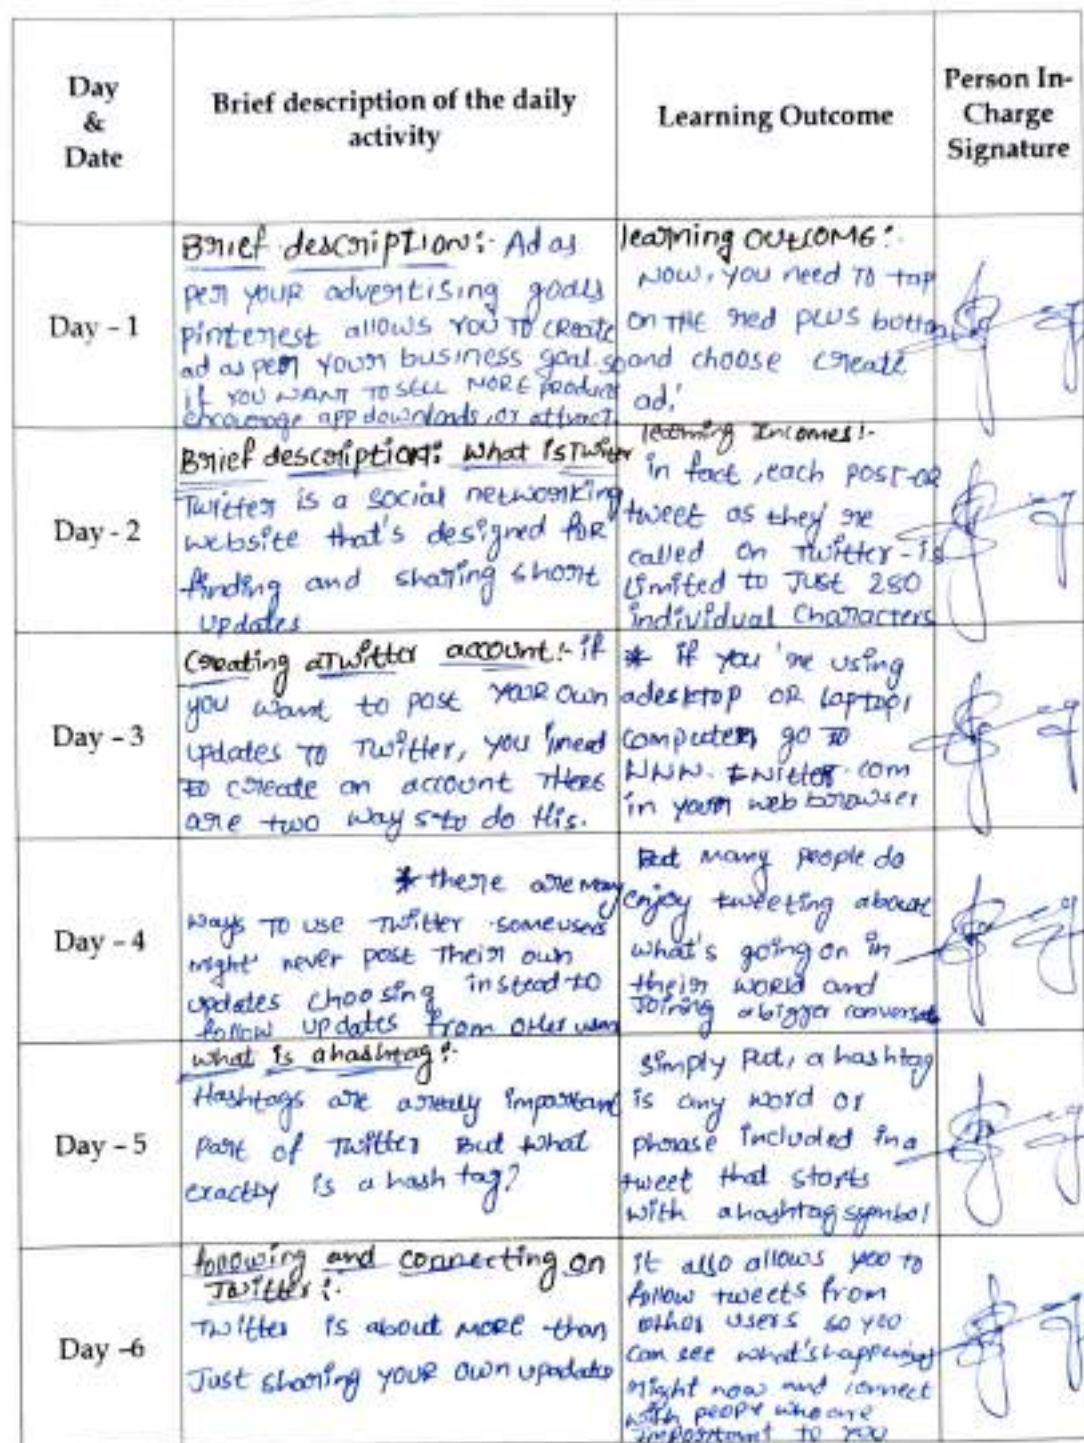 Day & Date
Brief description of the daily activity
Learning Outcome
Person In-Charge Signature
Day - 1
Brief description:- Ad as
per your advertising goals
pinterest allows you to create
ad as per your business goal. so
if you want to sell more product
encourage app downloads, or attract
learning outcome:-
Now, you need to tap
on the red plus button
and choose create
ad.'
Day - 2
Brief description: what is Twitter
Twitter is a social networking
website that's designed for
finding and sharing short
updates
learning Incomes!-
in fact, each post-or
tweet as they're
called on Twitter - is
Limited to Just 280
individual Characters
Day - 3
Creating a Twitter account:- if
you want to post your own
updates to Twitter, you need
to create an account there
are two ways to do this.
* if you're using
a desktop or laptop,
computer, go to
www.twitter.com
in your web browser
Day - 4
* there are many
ways to use Twitter some users
might never post their own
updates choosing instead to
follow updates from other users
But many people do
enjoy tweeting about
what's going on in
their world and
Joining a bigger
Day - 5
what is a hashtag:-
Hashtags are a important
part of Twitter But what
exactly is a hash tag?
simply put, a hashtag
is any word or
phrase included in a
tweet that starts
with a hashtag symbol
Day -6
following and connecting on
Twitter:-
Twitter is about more than
Just sharing your own upadates
it also allows you to
follow tweets from
other users so you
can see what's happening
right now and connect
with people who are
important to you